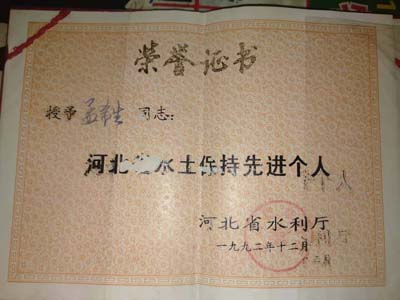 荣誉证书
授予 孟 同志：
河北省水土保持先进个人
河北省水利厅
一九九二年十二月